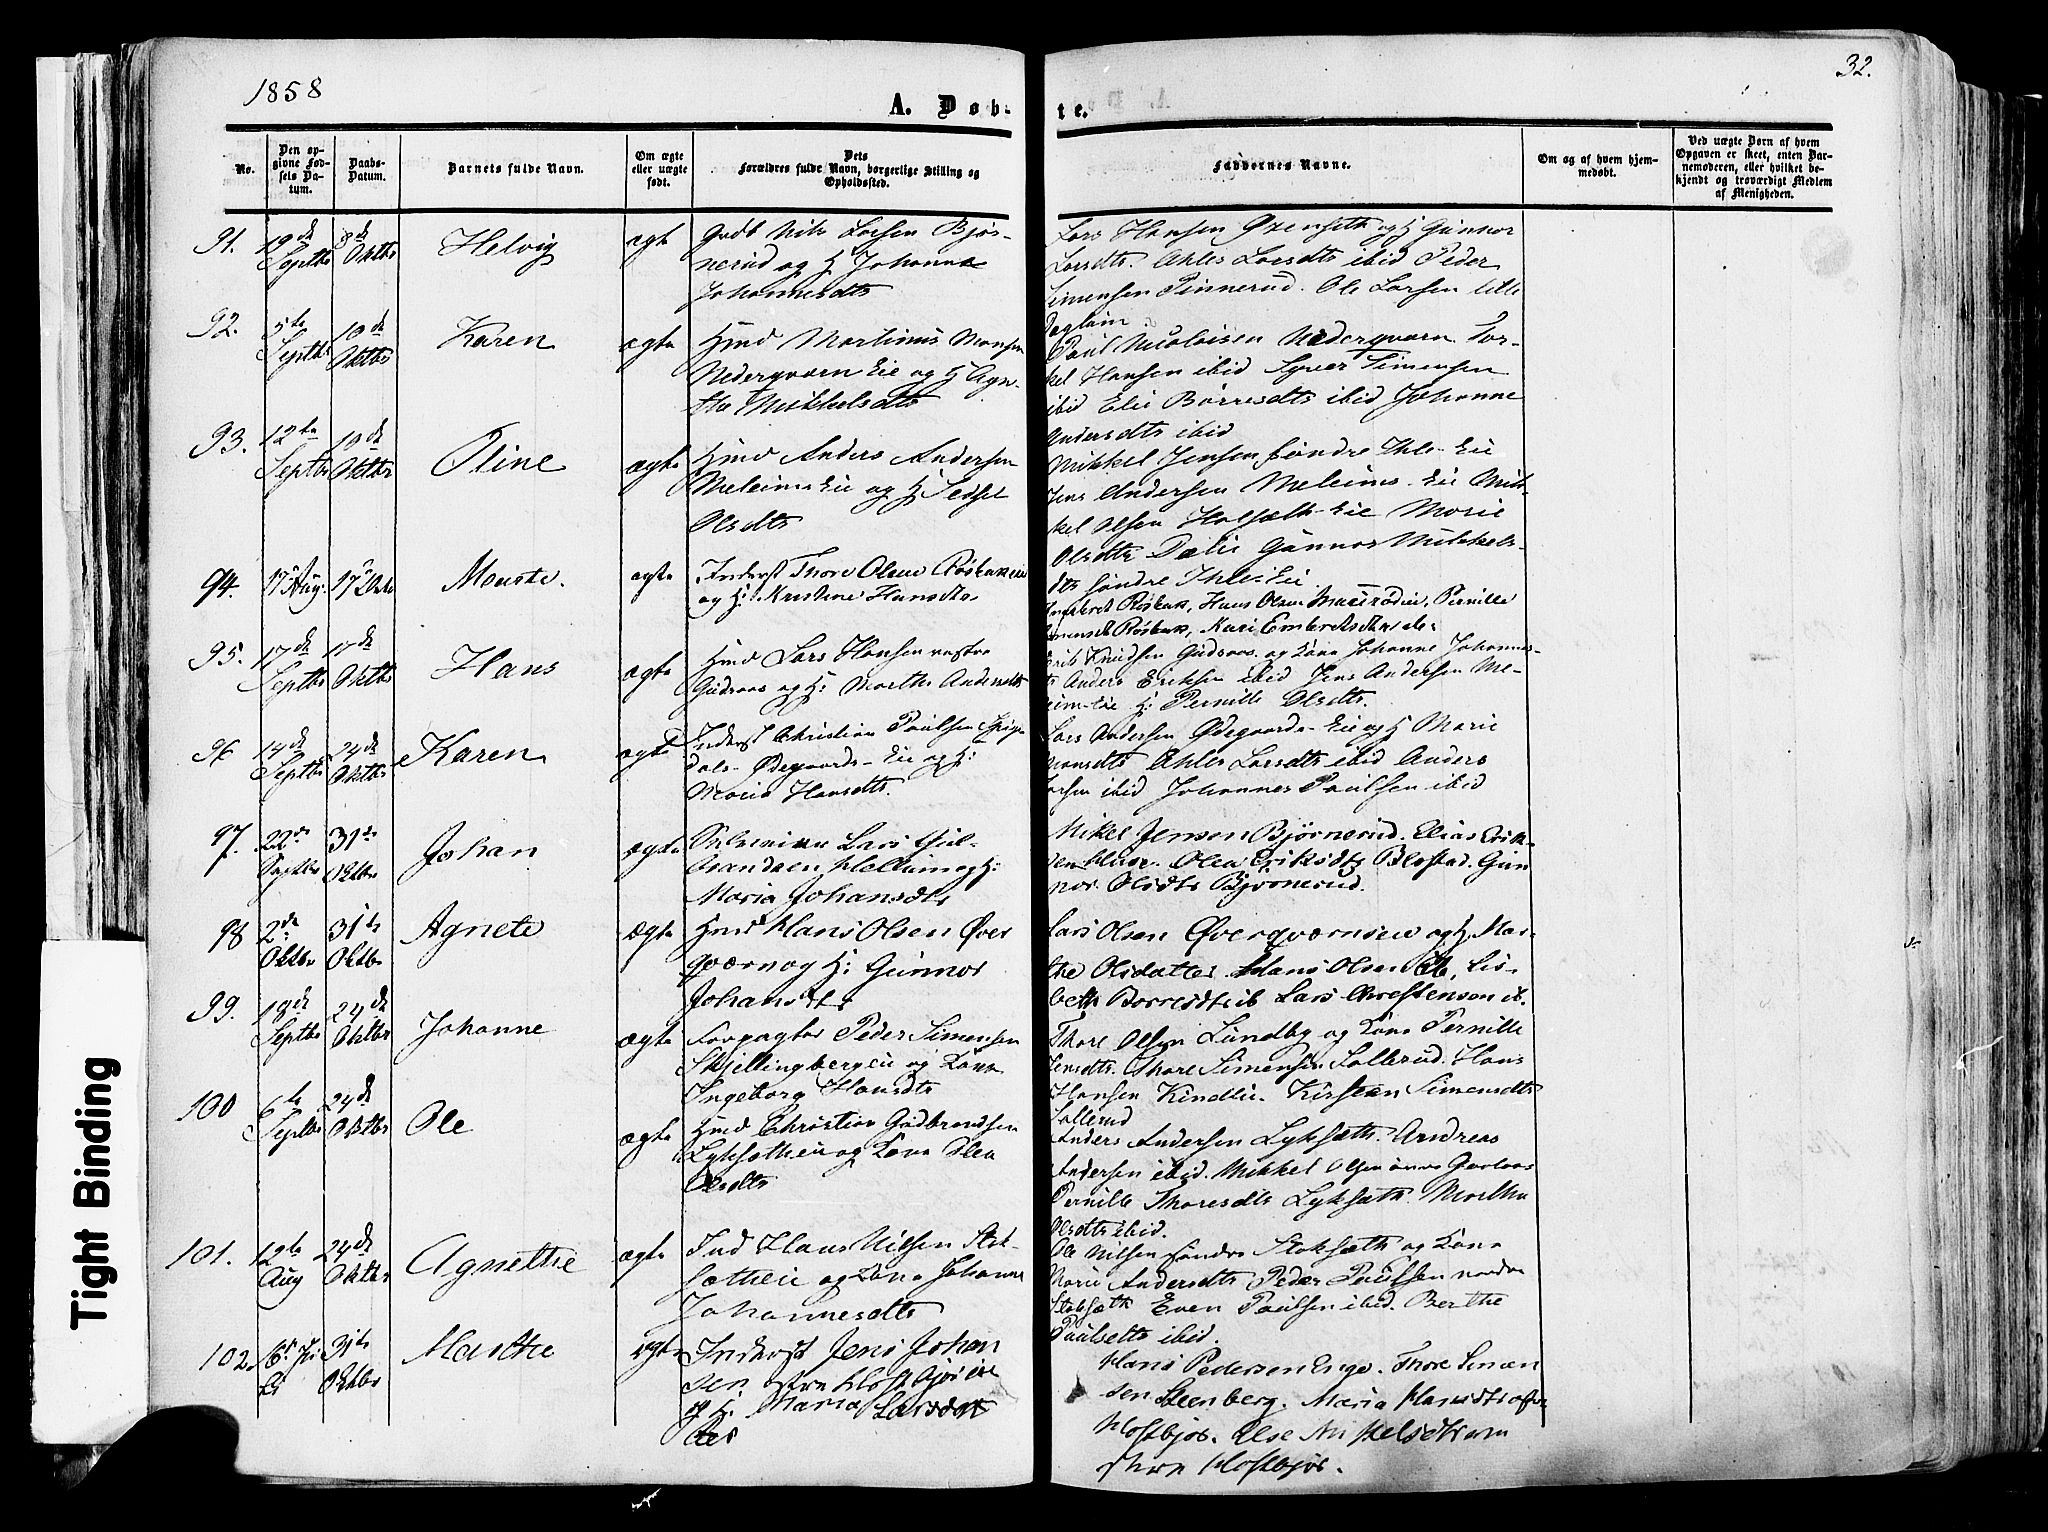 1858
32.
A. Døb-
te.
No.
Den op-
givne Fød-
sels Da-
tum.
Daabs-
Datum.
Barnets fulde Navn.
Om ægte
eller uægte
født.
Dets
Forældres fulde Navn, borgerlige Stilling og
Opholdssted.
Faddernes Navne.
Om og af hvem hjem-
medøbt.
Ved uægte Børn af hvem
Opgaven er skeet, enten Bar-
nemoderen, eller hvilket be-
kjendt og troværdigt Medlem
af Menigheden.
91.
19de
Septbr
8de
Oktbr
Helvig
ægt
Gudb Nils Larsen Bjør-
nerud og H Johanne
Johannesdtr
Lars Hansen Oxenseth og H Gunnor
Larsdtr. Ahles Larsdtr ibid Peder
Simensen Pinnerud. Ole Larsen lille
Daglein
92.
5te
Septbr
10de
Oktbr
Karen
ægte
Hmd Martinus Monsen
Nederqværn Eie og H Agn-
the Mikkelsdtr
Paul Nicolaisen Nederqværn. Tor-
kel Hansen ibid Syver Simensen
ibid Elie Börresdtr ibid Johanne
Andersdtr ibid
93.
12te
Septbr
10de
Oktbr
Oline
ægte
Hmd Anders Andersen
Meleims Eie og H Sedsel
Olsdtr
Mikkel Jensen Søndre Ihle-Eie
Jens Andersen Meleims-Eie Mik-
kel Olsen Holsæth-Eie Marie
Olsdtr Dælie Gunnor Mikkels-
dtr Søndre Ihle-Eie
94.
17. Aug.
17 Okt
Marte.
ægte
Inderst Thore Olsen Røsbakeie
og H: Kristine Hansdtr
Røsbak, Hans Olsen Pernille
Røsbak, Kari Embretsdtr
95.
17de
Septbr
17de
Oktbr
Hans
ægte
Hmd Lars Hansen vestre
Gudsaas og H: Marthe Andersdtr
Erik Knudsen Gudsaas og Kone Johanne Johannes-
Anders Eriksen ibid Jens Andersen Me-
leim-Eie H: Pernille Olsdtr.
96
14de
Septbr
24de
Oktbr
Karen
ægte
Inderst Christian Paulsen Spigr-
dals- Ødegaards-Eie og H:
Marie Hansdtr.
Lars Andersen Ødegaards-Eie og H Marie
Monsdtr Ahles Larsdtr ibid Anders
Larsen ibid Johannes Paulsen ibid
97.
22de
Septbr
31te
Oktbr
Johan
ægte
Lars Gul-
brandsen Hellum og H:
Maria Johansdtr
Mikel Jensen Bjørnerud. Elias Erik-
sen Olea Eriksdtr Blostad. Gun
nor Olsdtr Bjørnerud.
98
2de
Oktbr
31te
Oktbr
Agnete
ægte
Hmd Hans Olsen Øver
qværn og H: Gunnor
Johansdtr
Lars Olsen Øverqværnseie og H. Mar-
the Olsdatter Hans Olsen ib, Lis-
beth Borresdtr ib Lars Christensen ib.
99.
18de
Septbr
24de
Oktbr
Johanne
ægte
Forpagter Peder Simensen
Skjellingbergeie og Kone
Ingeborg Hansdtr
Thore Olsen Lundby og Kone Pernille
Jensdtr. Thore Simensen Sollerud. Hans
Hansen Kindlie. Kirsten Simensdtr
Sollerud
100
6te
Septbr
24de
Oktbr
Ole
ægte
Hmd Christian Gudbrandsen
Lyksætheie og Kone Olea
Olsdtr
Anders Andersen Lyksæth. Andreas
Andersen ibid. Mikkel Olsen
Pernille Thoresdtr Lyksæth. Marthe
Olsdtr ibid.
101.
12te
Aug
24de
Oktbr
Agnethe
ægte
Ind Hans Nilsen Stok-
sætheie og Kone Johanne
Johannesdtr
Ole Nilsen Søndre Stoksæth og Kone
Marie Andersdtr Peder Paulsen nordre
Stoksæth Even Paulsen ibid. Berthe
Paulsdtr ibid.
102.
31te
Oktbr
Marthe
ægte
Inderst Jens Johan
sen østre Hostbjøreie
og H. Maria Larsdat
ter
Hans Pedersen Enge. Thore Simen
sen Steenberg. Maria Hansdtr
Hostbjør. Else Mikkelsdtr
Hostbjør.
Tight Binding